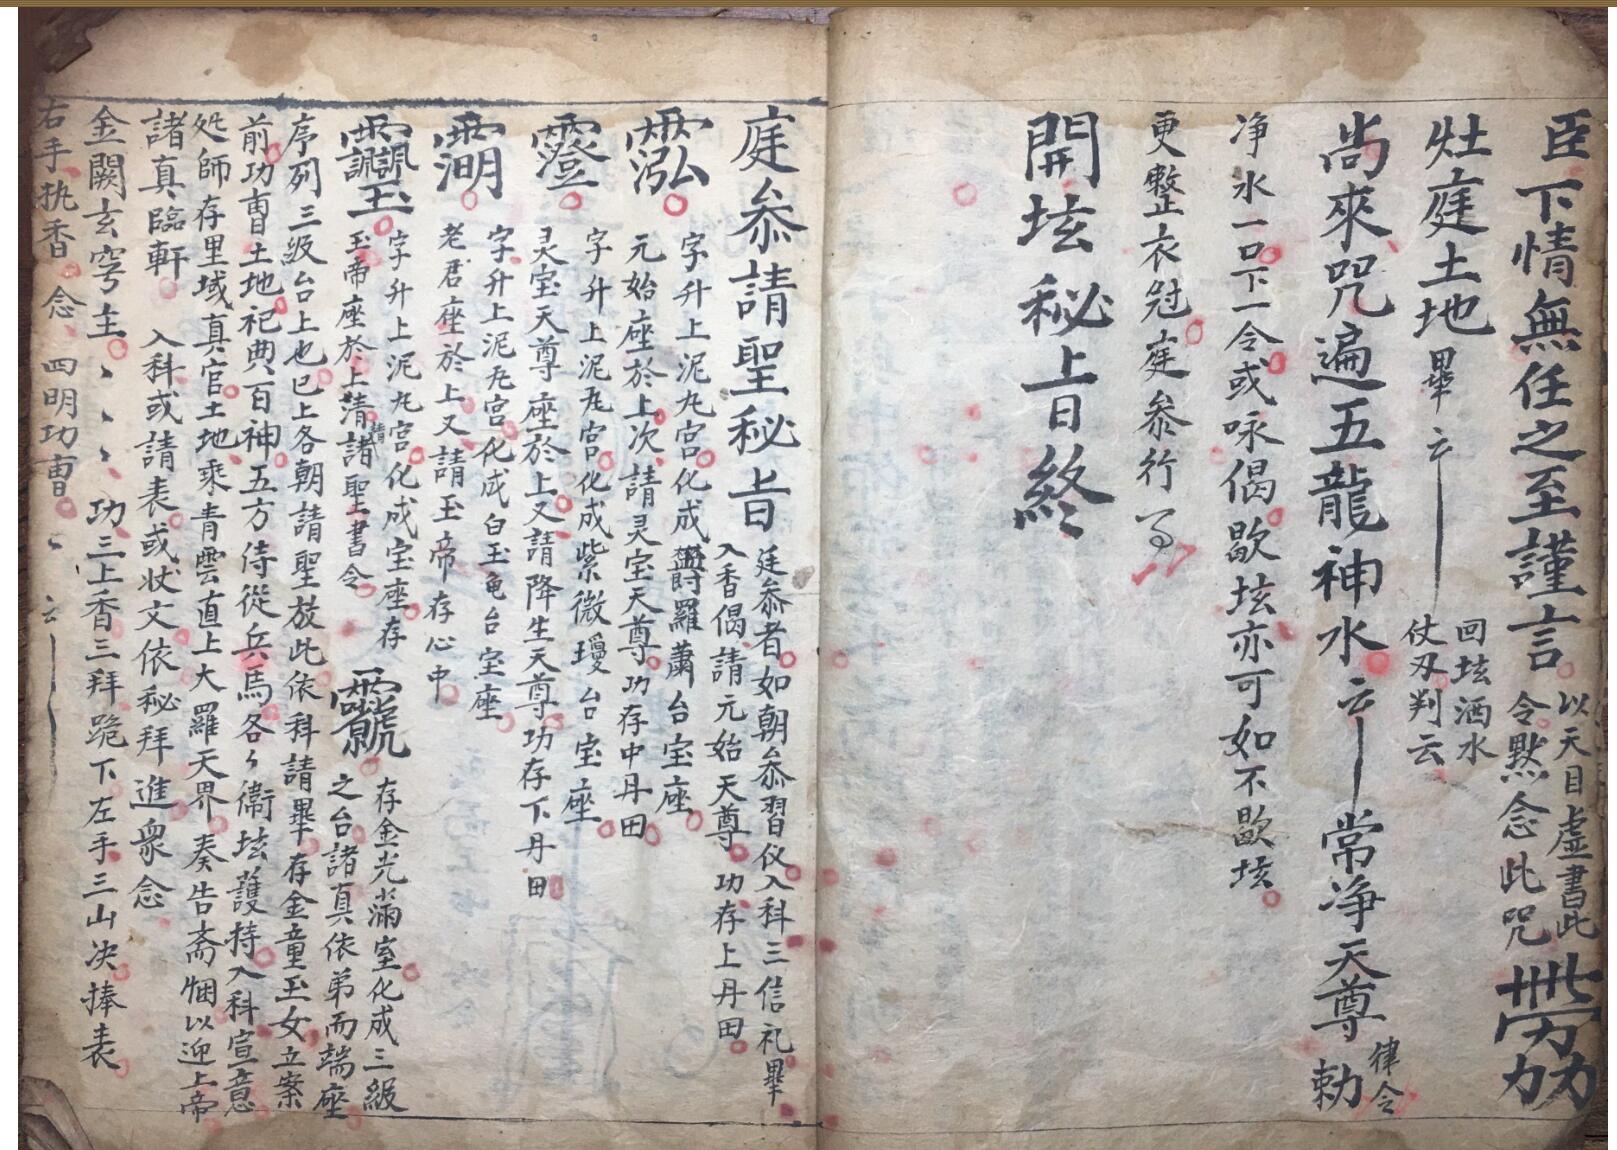 臣下情無任之至謹言 以天目虚書此
令黙念此咒
灶庭土地 畢云 回坛洒水
仗刃判云
尚來咒遍五龍神水云 常净天尊 律令
勅
净水一口下一令或咏偈歇坛亦可如不歇坛
更整衣冠庭叅行
開坛秘旨終
庭叅請聖秘旨 廷叅者如朝叅習仪入科三信礼畢
入香偈請元始天尊功存上丹田
字升上泥丸宫化成 羅蕭台宝座
元始座於上次請灵宝天尊功存中丹田
字升上泥丸宫化成紫微瓊台宝座
灵宝天尊座於上又請降生天尊功存下丹田
字升上泥丸宫化成白玉龟台宝座
老君座於上又請玉帝存心中
字升上泥丸宫化成宝座存
玉帝座於上清請諸聖書令
存金光滿室化成三級
之台諸真依弟而端座
序列三級台上也巳上各朝請聖放此依科請畢存金童玉女立案
前功曹土地祀典百神五方侍從兵馬各々衛坛護持入科宣意
処師存里域真官土地乘青雲直上大羅天界奏告斋悃以迎上帝
諸真臨軒 入科或請表或状文依秘拜進眾念
金闕玄穹主、、、、功三上香三拜跪下左手三山决捧表
右手执香念 四明功曹、云